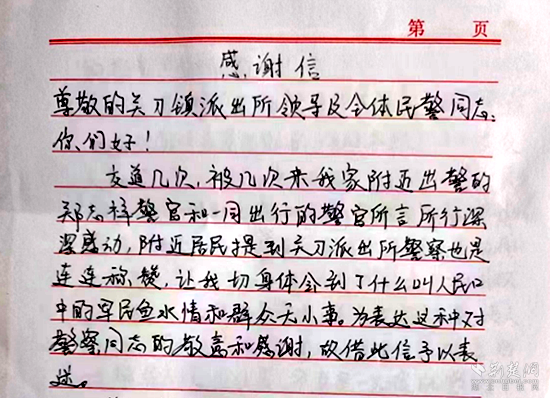 第 页
感谢信
尊敬的关刀镇派出所领导及全体民警同志:
你们好!
几次,被几次来我家附近出警的
郑志警官和一同出行的警官所言所行深
深感动,附近居民提到关刀派出所警察也是
连连称赞,让我切身体会到了什么叫人民口
中的军民鱼水情和群众无小事。为表达这种对
警察同志的敬意和感谢,故借此信予以表
达。
荆楚网